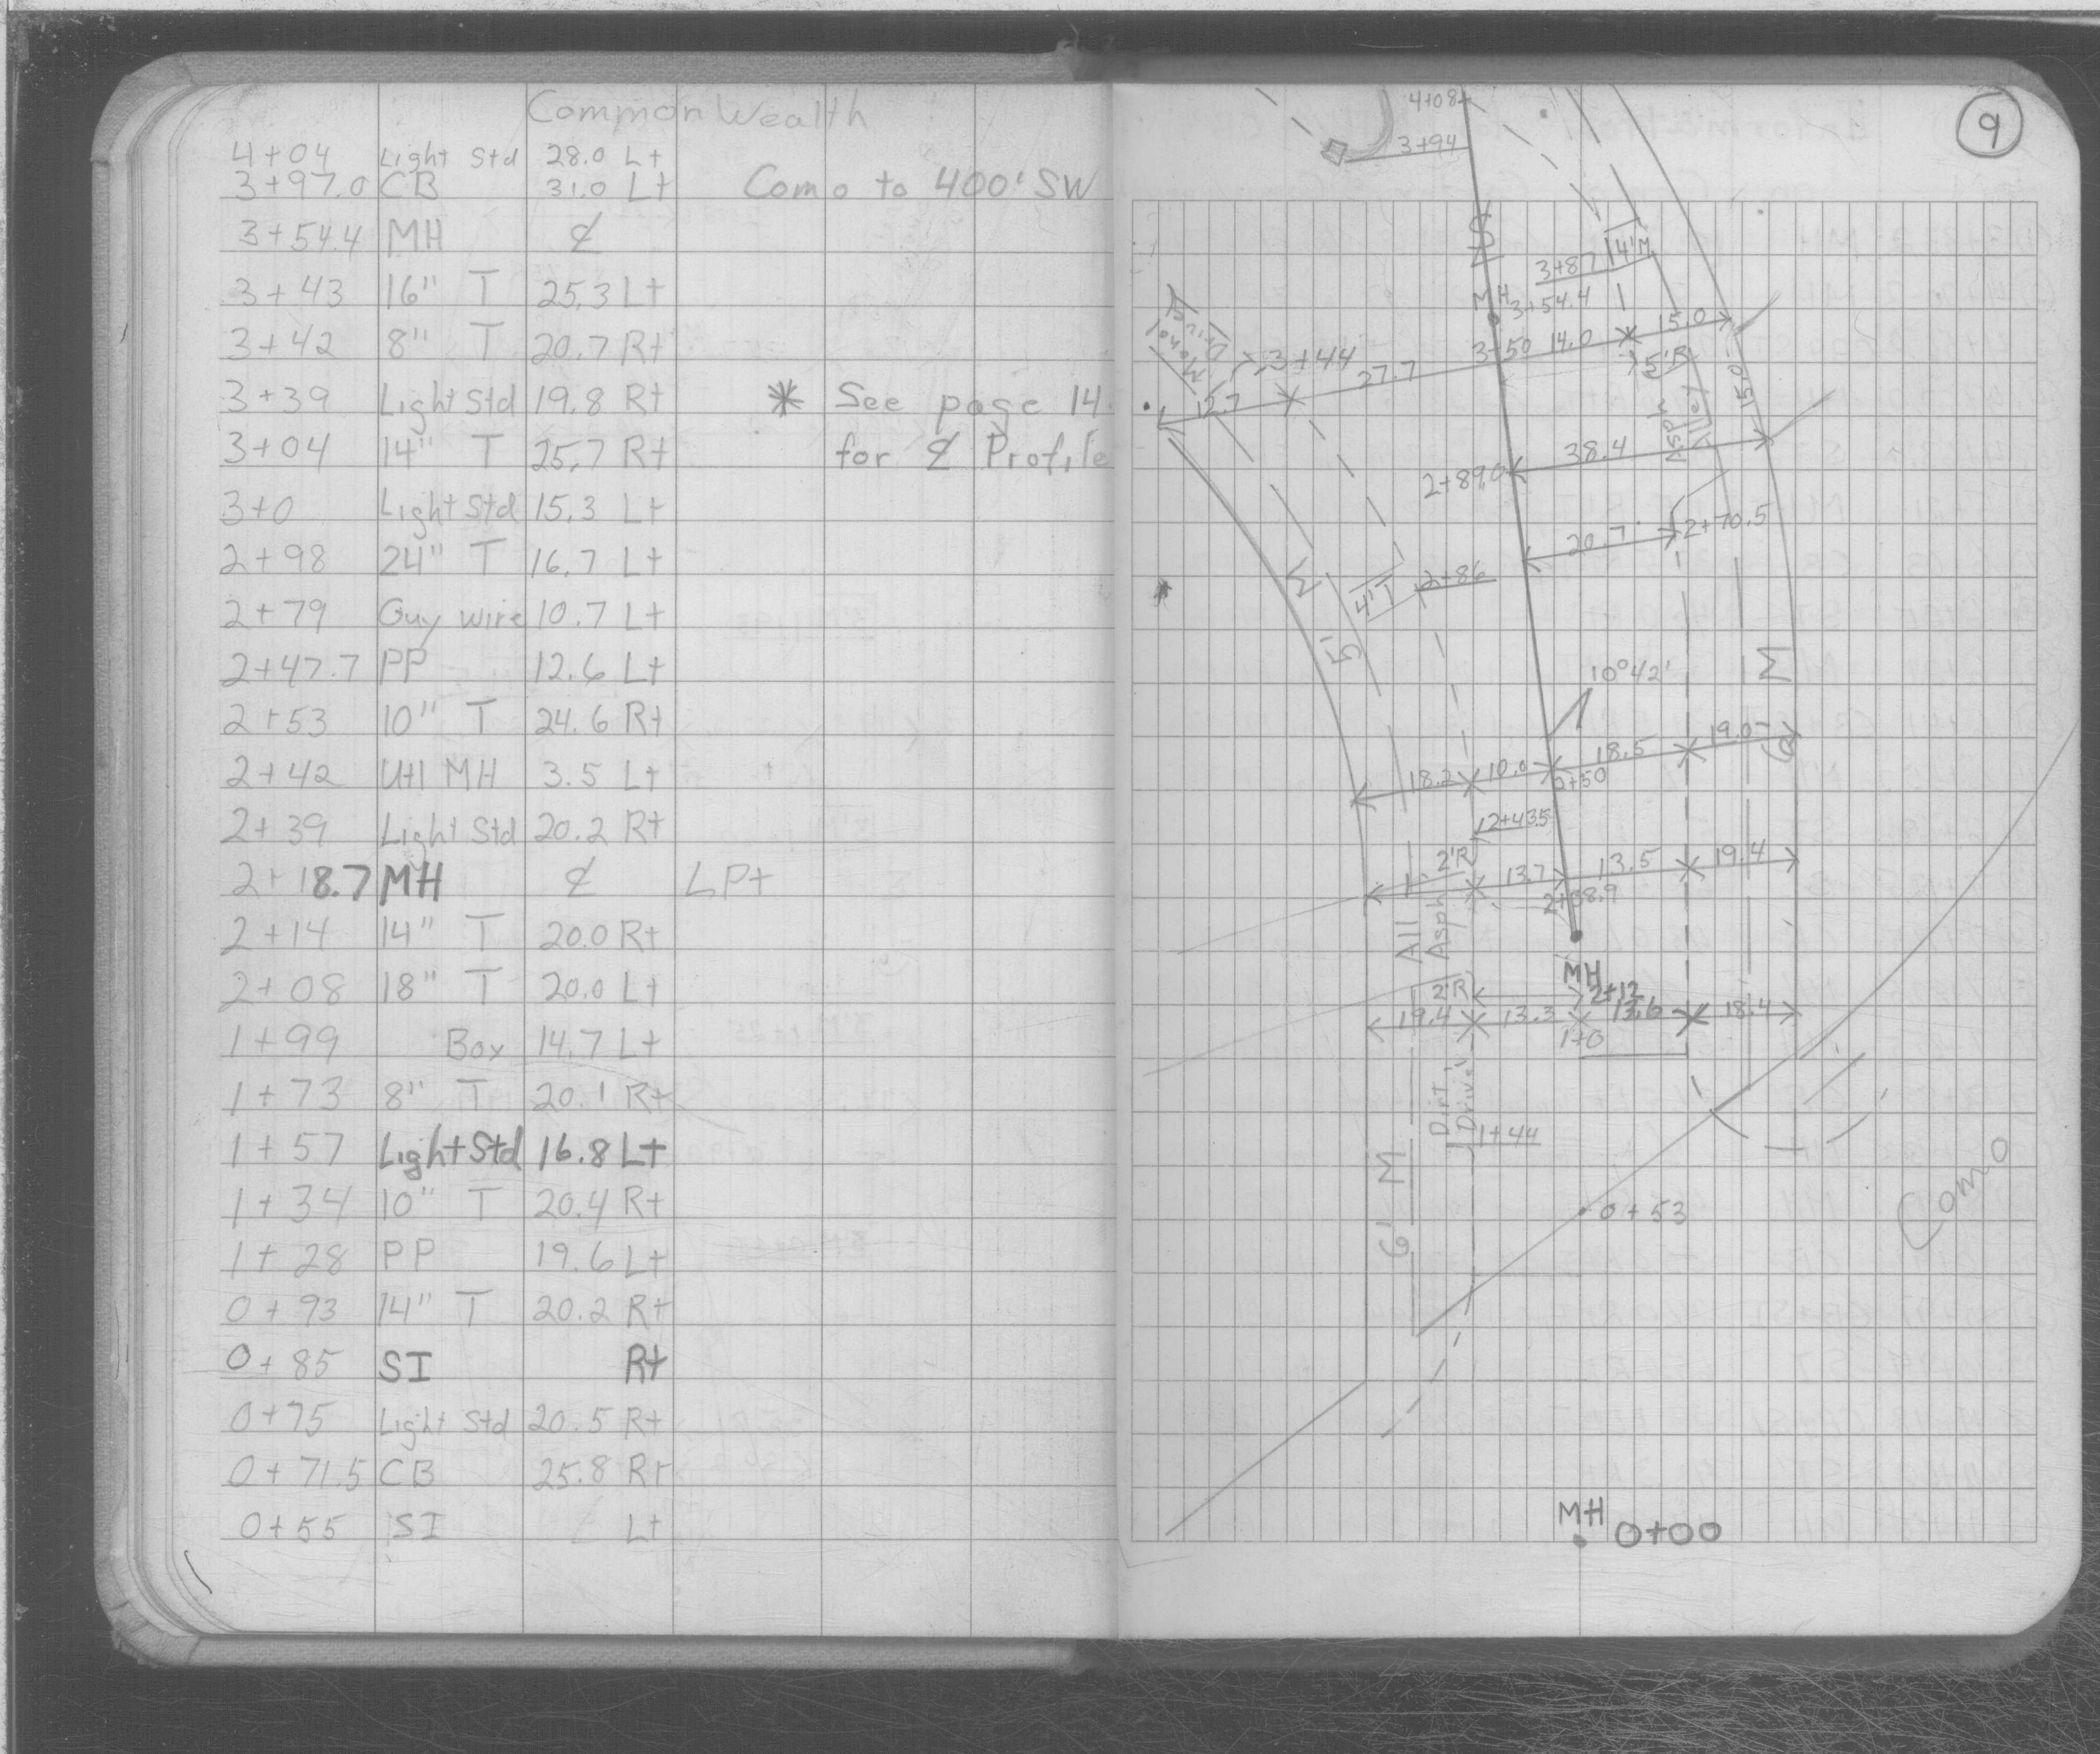 Common Wealth
4+04 Light Std 28.0 Lt
3+97.0 CB 31.0 Lt Como to 400' SW
3+54.4 MH ℄
3+43 16" T 25.3 Lt
3+42 8" T 20.7 Rt
3+39 Light Std 19.8 Rt * See page 14
3+04 14" T 25.7 Rt for ℄ Profile
3+0 Light Std 15.3 Lt
2+98 24" T 16.7 Lt
2+79 Guy wire 10.7 Lt
2+47.7 PP 12.6 Lt
2+53 10" T 24.6 Rt
2+42 Utl MH 3.5 Lt
2+39 Light Std 20.2 Rt
2+18.7 MH ℄ LPt
2+14 14" T 20.0 Rt
2+08 18" T 20.0 Lt
1+99 Box 14.7 Lt
1+73 8" T 20.1 Rt
1+57 Light Std 16.8 Lt
1+34 10" T 20.4 Rt
1+28 PP 19.6 Lt
0+93 14" T 20.2 Rt
0+85 SI Rt
0+75 Light Std 20.5 Rt
0+71.5 CB 25.8 Rt
0+55 SI Lt
9
4+08
3+94
4'M
3+87
MH 3+54.4
3+50 14.0 15.0
5'R
3+44
27.7
12.7
Drive
15.0
Asph Alley
38.4
2+89.0
20.7
2+70.5
M
4'T
2+86
5'
M
10°42'
18.2 10.0 18.5 19.0
2+50
6'
2+43.5
2'R
13.7 13.5 19.4
2+38.9
All Asph
MH
2'R
2+12
19.4 13.3 13.6 18.4
1+0
Dirt Drive
1+44
6' M
0+53
Como
MH 0+00